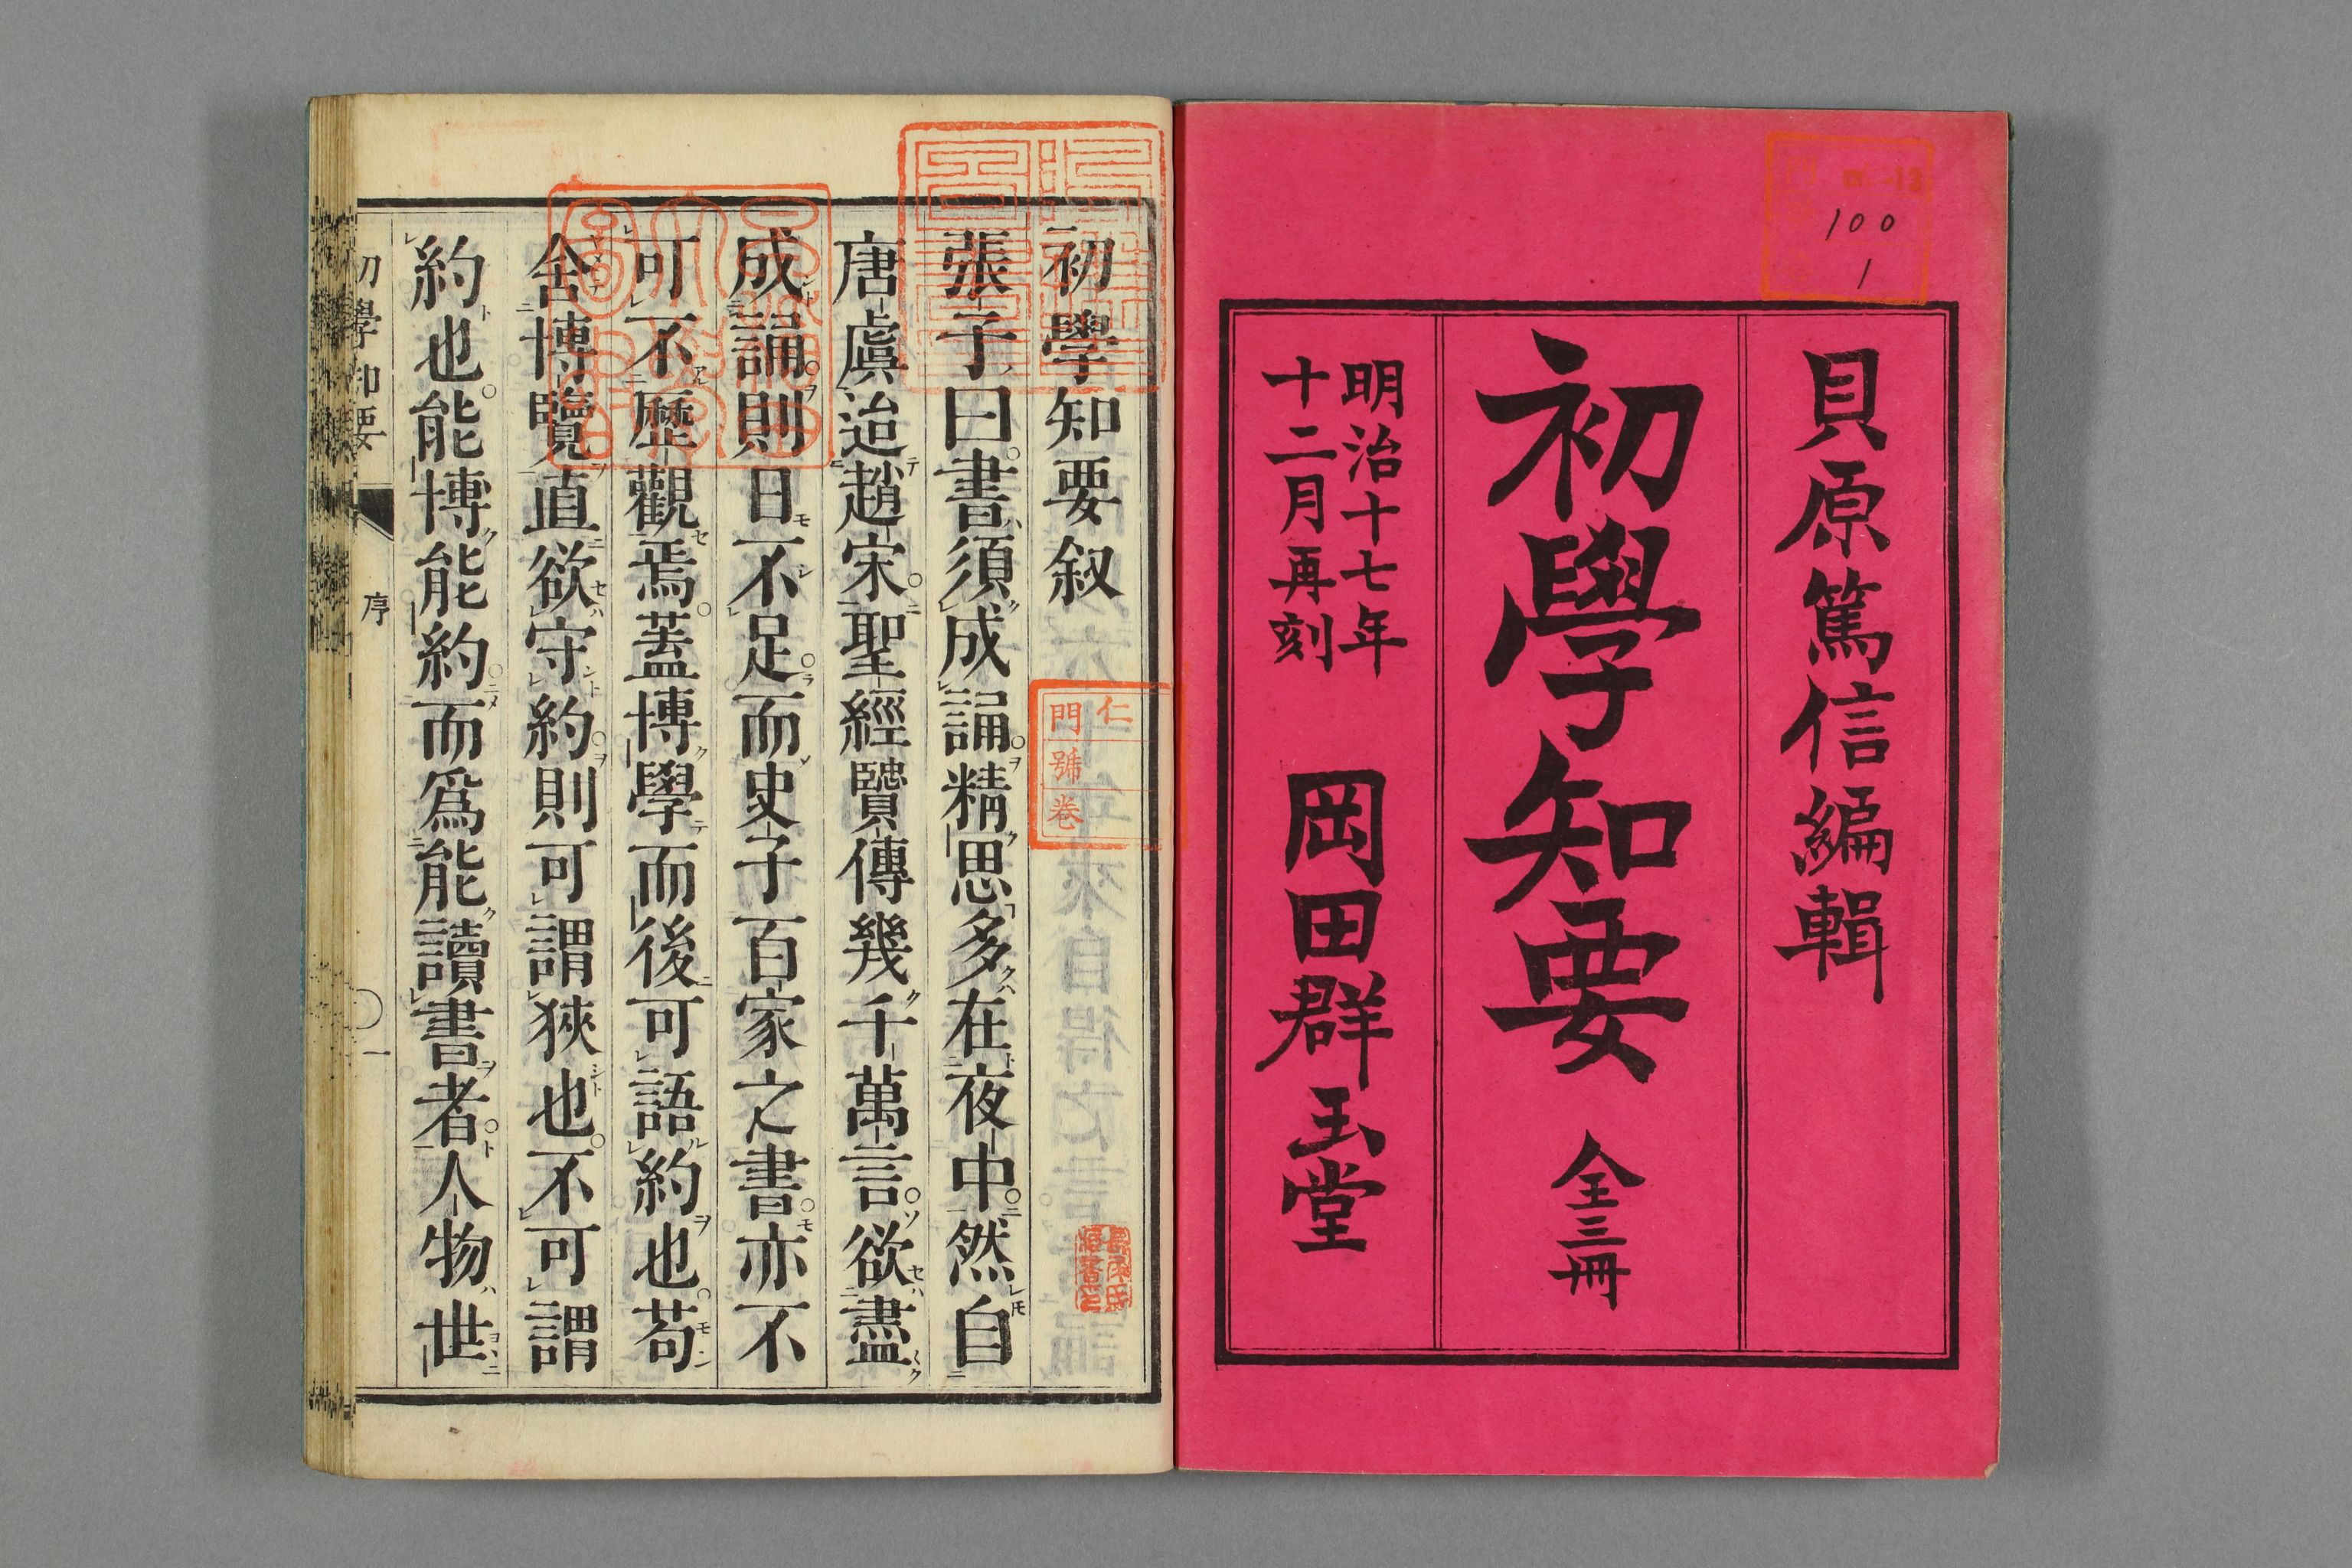 貝原篤信編輯
初學知要 全三冊
明治十七年
十二月再刻
岡田群玉堂
100
1
初學知要叙
張子曰書須成誦精思多在夜中然自
唐虞迨趙宋聖經賢傳幾千萬言欲盡
成誦則日不足而史子百家之書亦不
可不歷觀焉蓋博學而後可語約也苟
舍博覽直欲守約則可謂狹也不可謂
約也能博能約而爲能讀書者人物世
初學知要
序
一
仁
門
號
卷